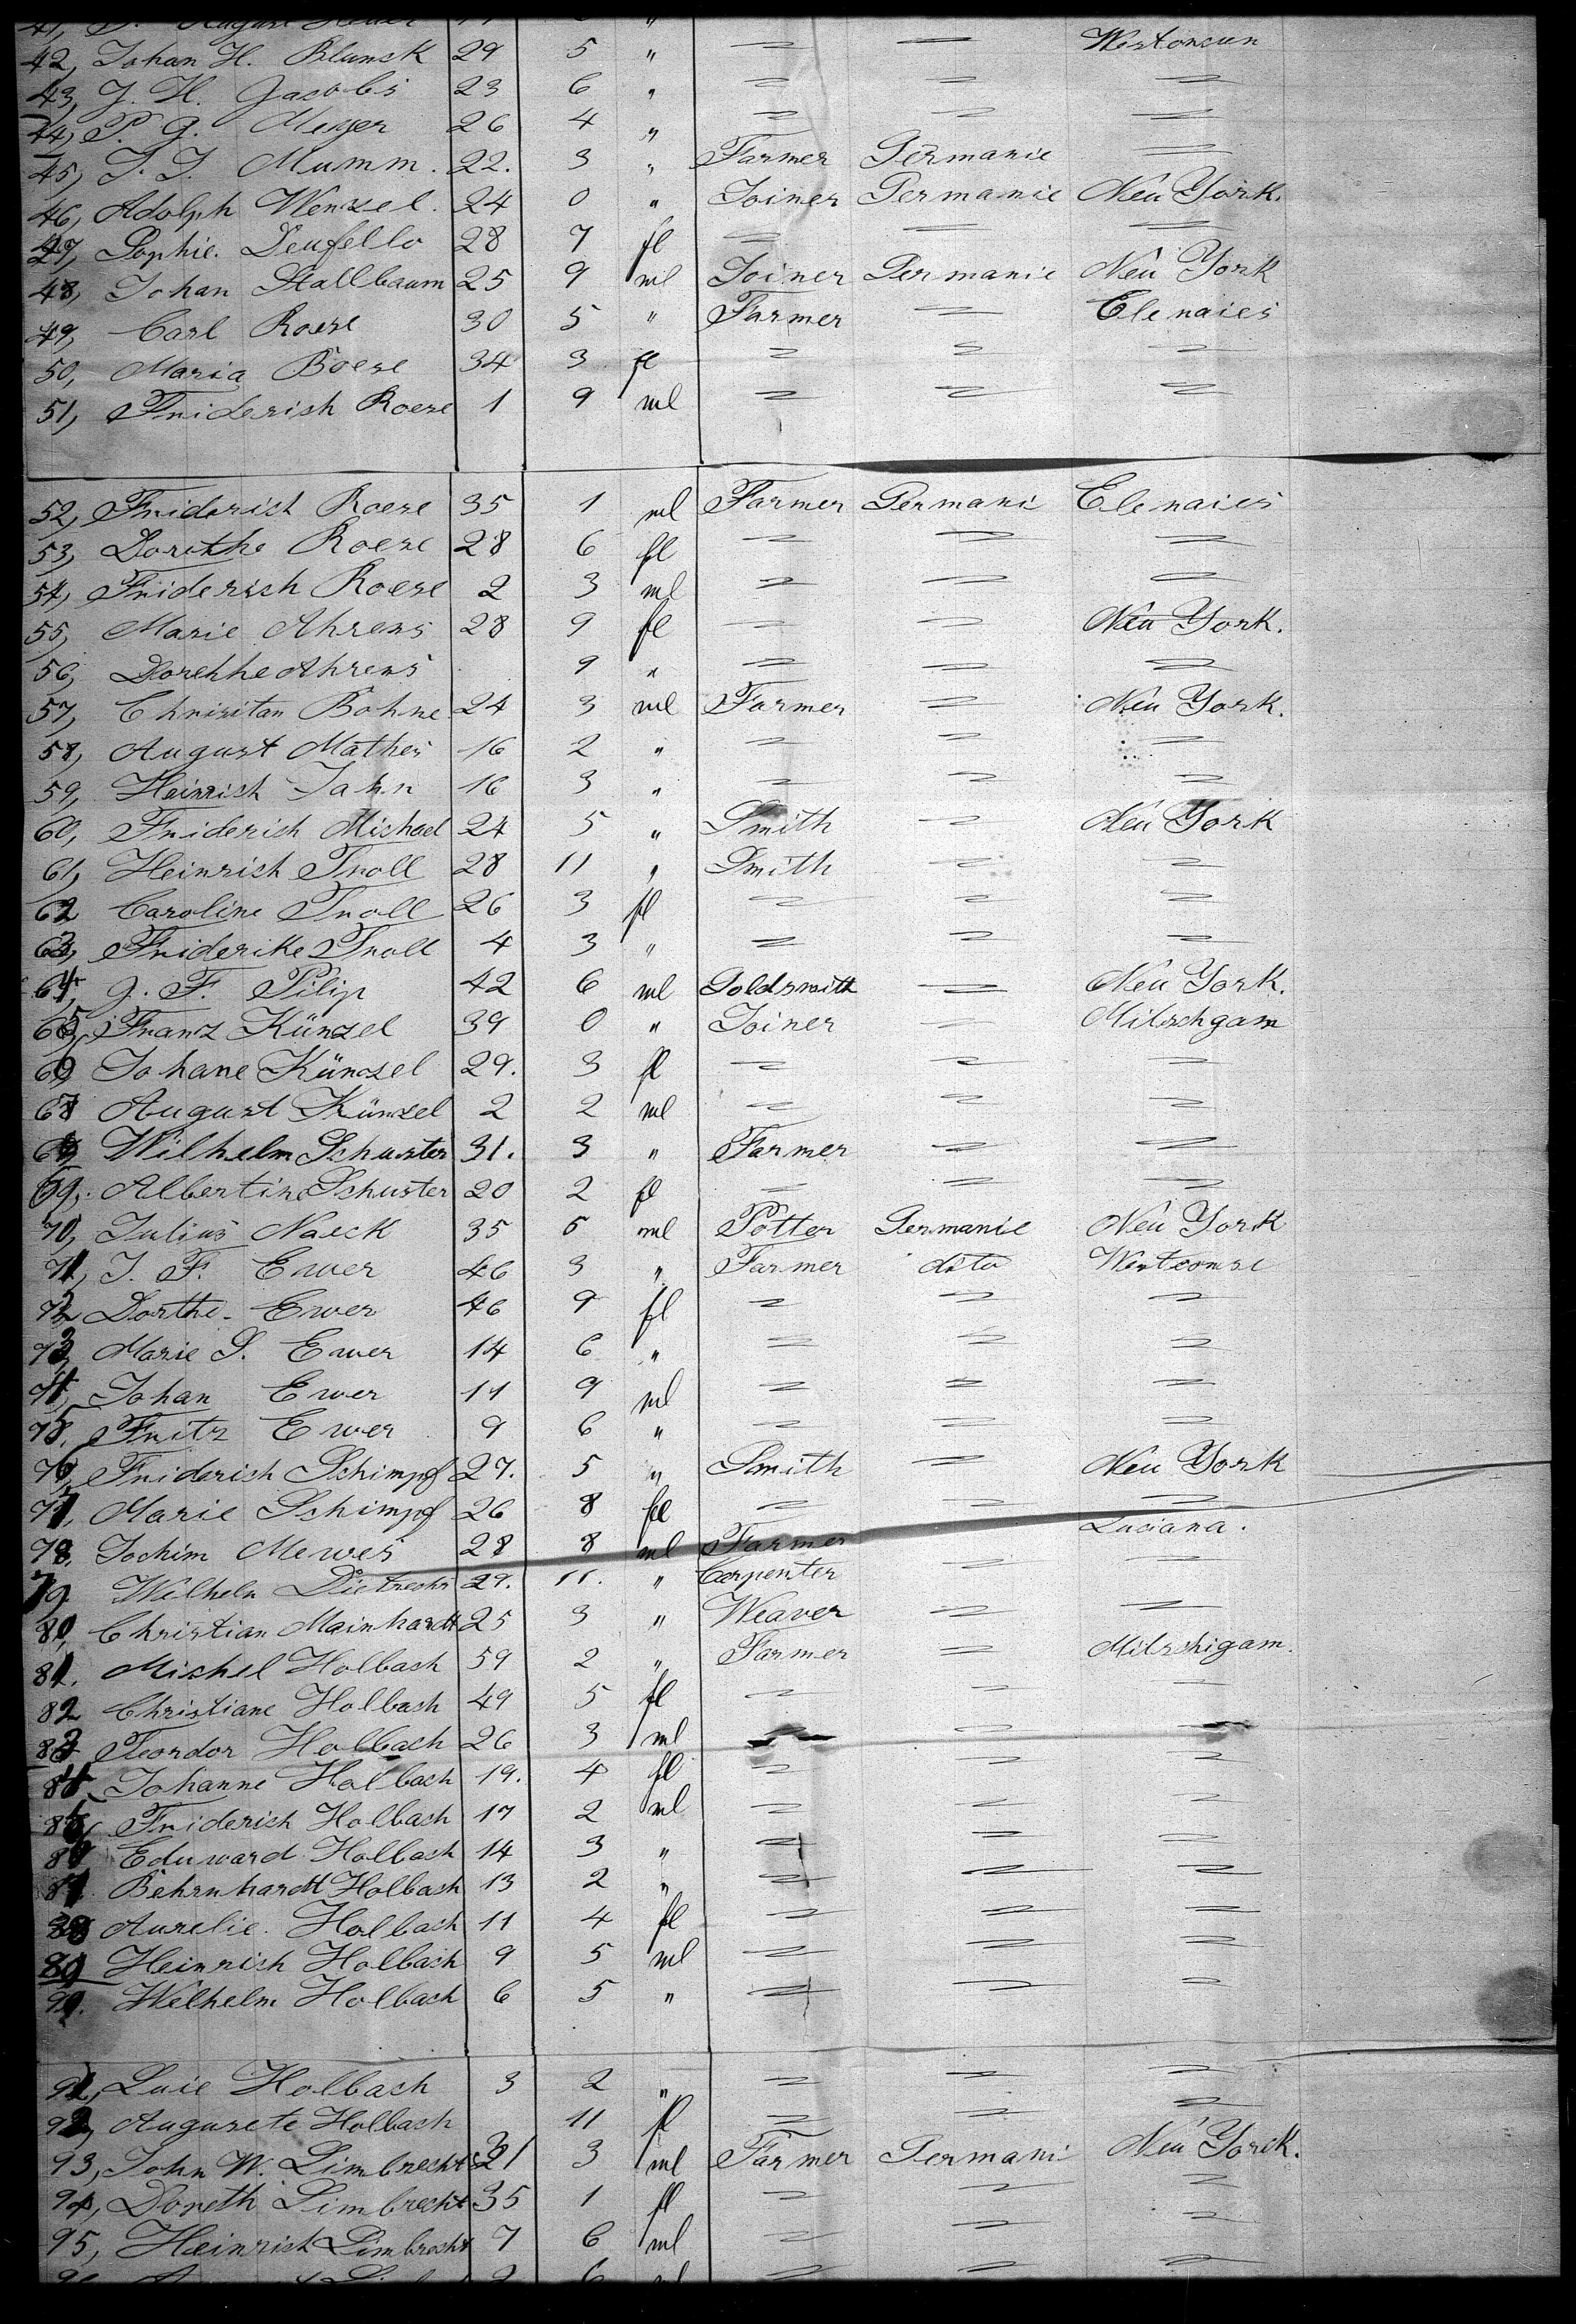 42, Johan H. Blunck 29 5 " = = Westonsun
43, J. H. Jacobs 23 6 " = = =
44, P. G. Meyer 26 4 " = = =
45, J. J. Mumm. 22. 3 " Farmer Germanie =
46, Adolph Wenzel. 24 0 " Joiner Germanie Neu York.
47, Sophie. Deufello 28 7 fl = = =
48, Johan Stallbaum 25 9 ml Joiner Germanie Neu York
49, Carl Roese 30 5 " Farmer = Elenaies
50, Maria Boese 34 3 fl = = =
51, Friderich Roese 1 9 ml = = =
52, Friderich Roese 35 1 ml Farmer Germani Elenaies
53, Dorethe Roese 28 6 fl = = =
54, Friderich Roese 2 3 ml = = =
55, Marie Ahrens 28 9 fl = = Neu York.
56, Dorethe Ahrens 9 " = = =
57, Chrisitan Bohne 24 3 ml Farmer = Neu York.
58, August Mathes 16 2 " = = =
59, Heinrich Jahn 16 3 " = = =
60, Friderich Michael 24 5 " Smith = Neu York
61, Heinrich Troll 28 11 " Smith = =
62 Caroline Troll 26 3 fl = = =
63, Friderike Troll 4 3 " = = =
64, J. F. Pilip 42 6 ml Goldsmith = Neu York.
65, Franz Künzel 39 0 " Joiner = Mitschgam
66 Johane Künzel 29. 3 fl = = =
67 August Künzel 2 2 ml = = =
68 Wilhelm Schuster 31. 3 " Farmer = =
69, Albertine Schuster 20 2 fl = = =
70, Julius Naeck 35 5 ml Potter Germanie Neu York
71, J. F. Ewer 46 3 " Farmer dito Westcomse
72 Dorthe. Ewer 46 9 fl = = =
73, Marie S. Ewer 14 6 " = = =
74, Johan Ewer 11 9 ml = = =
75. Fritz Ewer 9 6 " = = =
76, Friderich Schimpf 27. 5 " Smith = Neu York
77, Marie Schimpf 26 8 fl = = =
78. Jochim Mewes 28 8 ml Farmer Lusiana.
79 Wilhelm Dietrechs 29. 11. " Carpenter = =
80, Christian Mainhardt 25 3 " Weaver = =
81. Michel Holbach 59 2 " Farmer = Mitschigam.
82 Christiane Holbach 49 5 fl = = =
83 Teordor Holbach 26 3 ml = = =
84 Johanne Holbach 19. 4 fl = = =
85, Friderich Holbach 17 2 ml = = =
86 Eduward Holbach 14 3 " = = =
87. Behrnhardt Holbach 13 2 " = = =
88 Aurelie. Holbach 11 4 fl = = =
89 Heinrich Holbach 9 5 ml = = =
90. Wilhelm Holbach 6 5 " = = =
91, Luie Holbach 3 2 " = = =
92, Augusete Holbach 11 fl = = =
93, John W. Limbrecht 31 3 ml Farmer Germani Neu Yorck.
94, Doreth Limbrecht 35 1 fl = = =
95, Heinrich Limbrecht 7 6 ml = = =